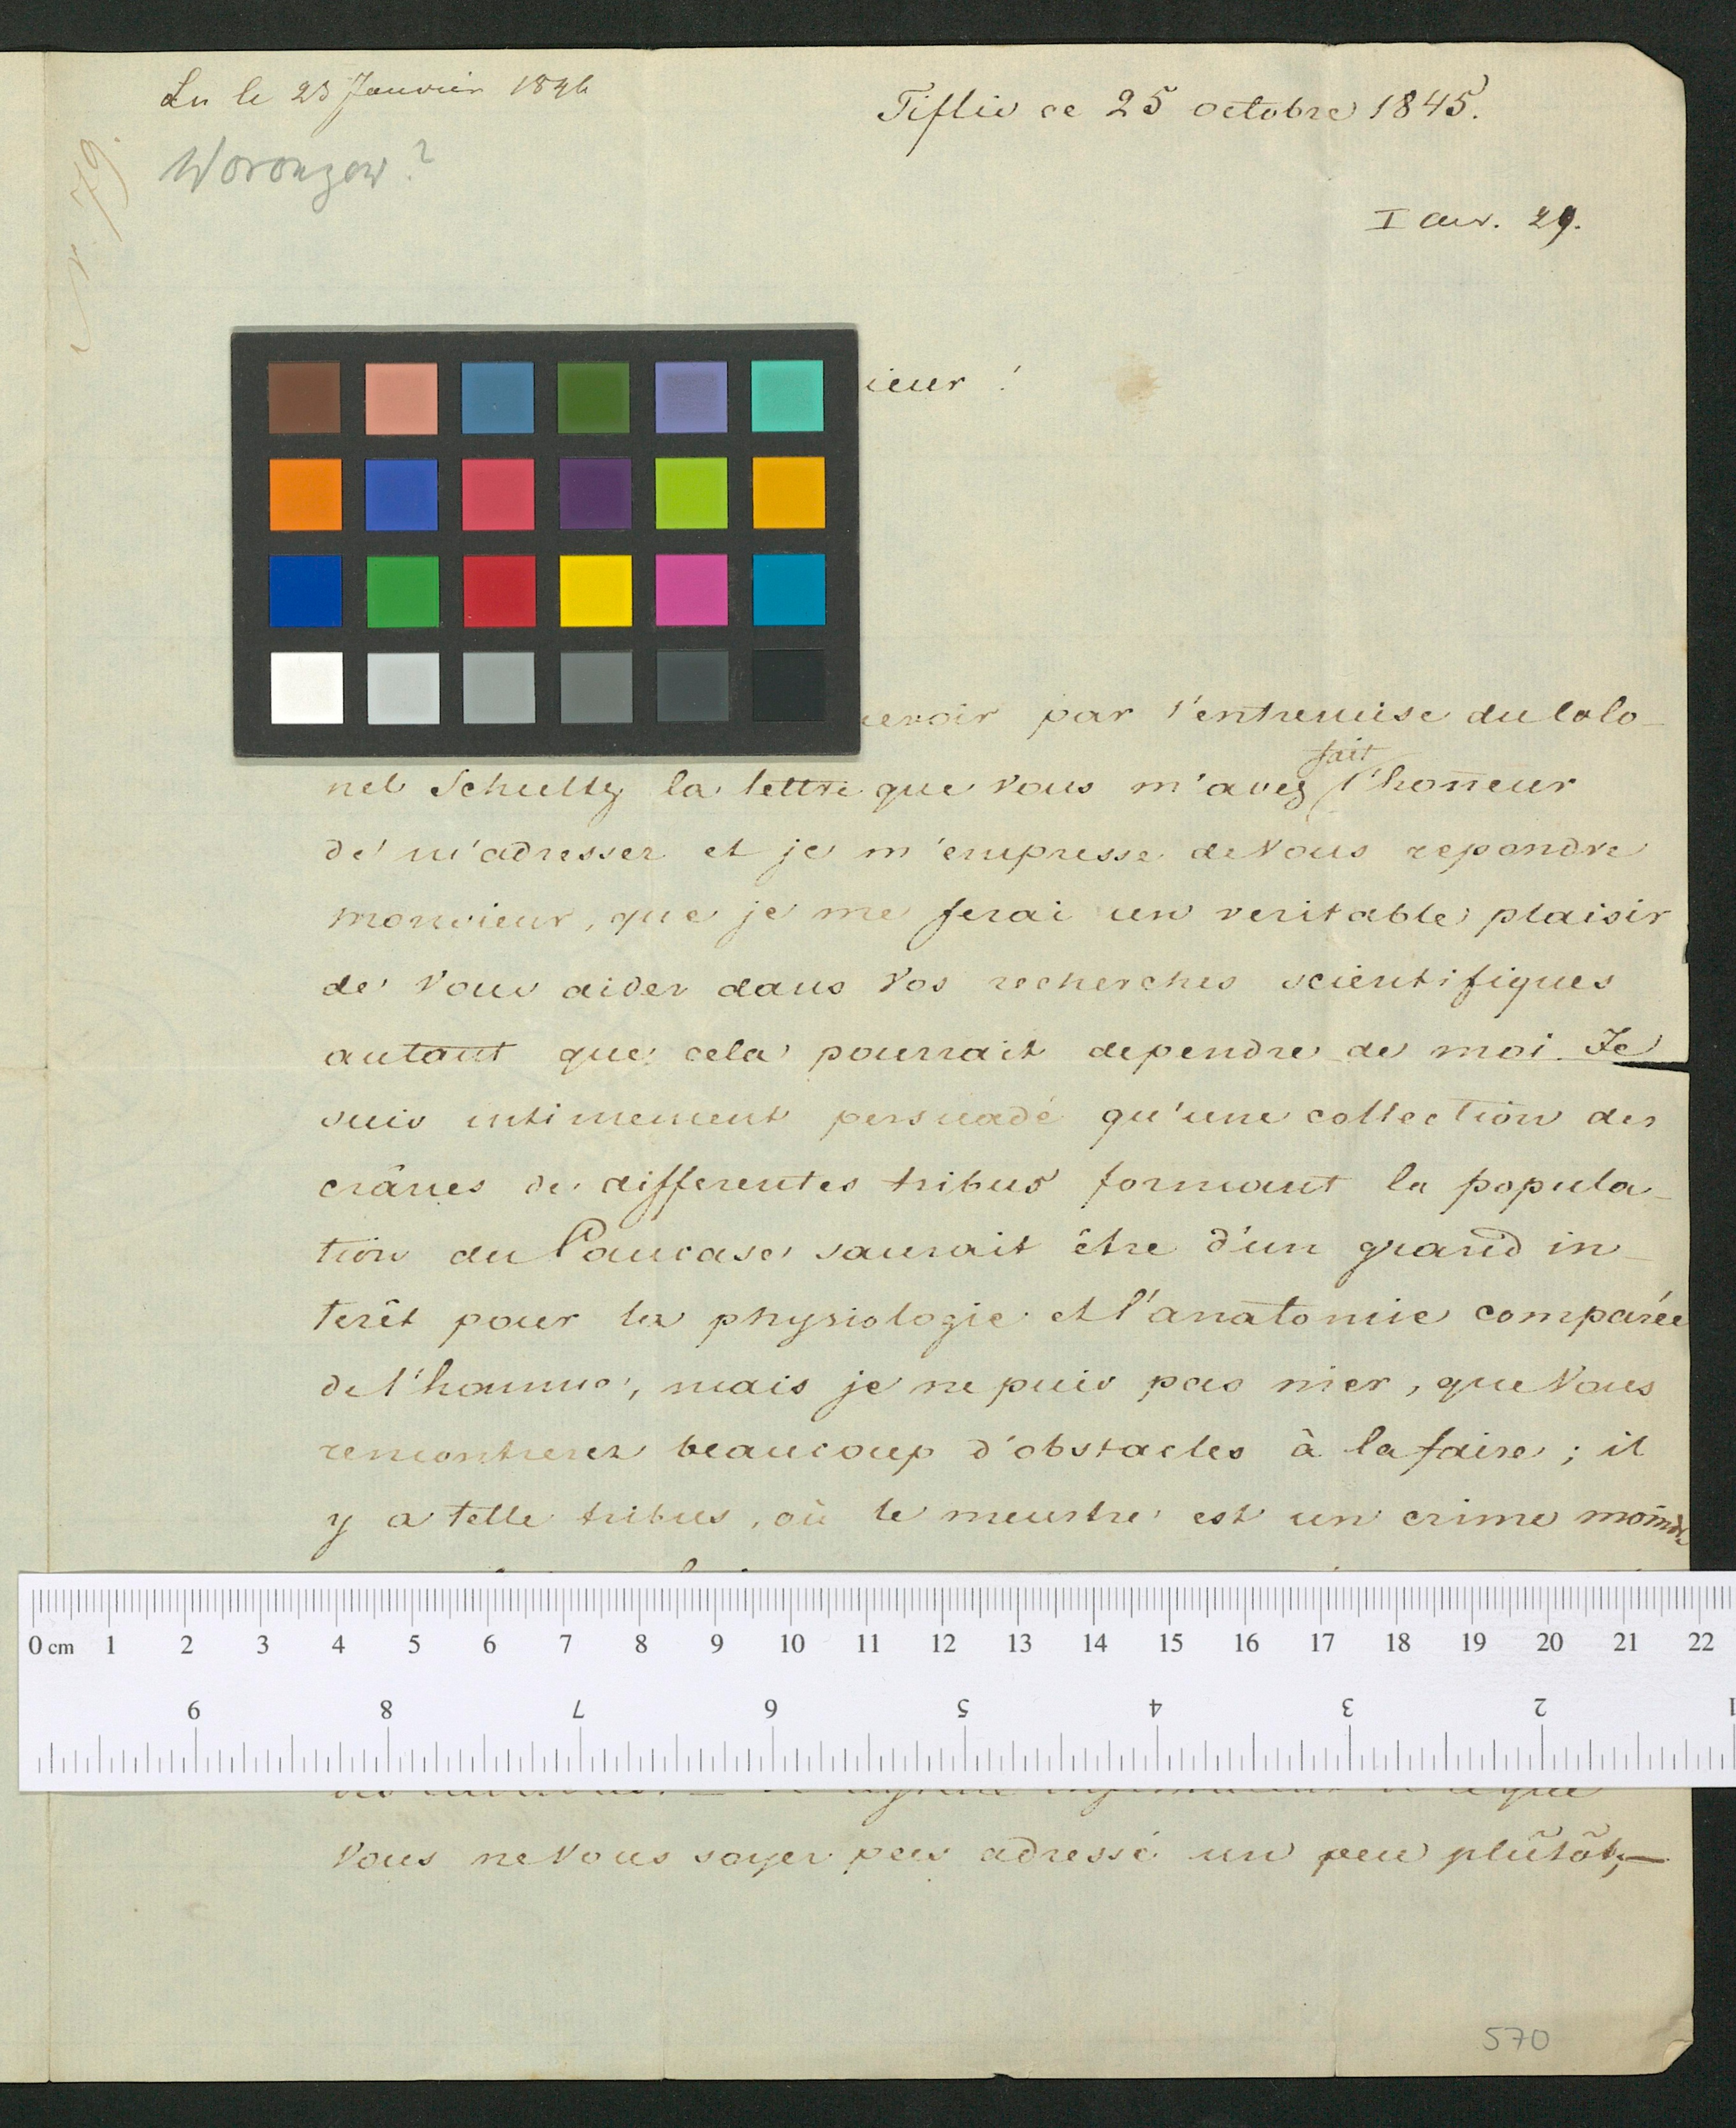 Lu le 23 Janvier 1846
Tiflis ce 25 octobre 1845.
Woronzow?
Nr. 79.
I 29.
ieur !
cevoir par l'entremise du Colo-
fait
nel Schultz la lettre que Vous m'avez l'honneur
de m'adresser et je m'empresse de Vous repondre
monsieur, que je me ferai un veritable plaisir
de Vous aider dans Vos recherches scientifiques
autant que cela pourrait dependre de moi. Je
suis intimement persuadé qu'une collection des
crânes de differentes tribus formant la popula-
tion du Caucase saurait être d'un grand in-
terêt pour la physiologie et l'anatomie comparée
de l'homme, mais je ne puis pas nier, que Vous
rencontrerez beaucoup d'obstacles à la faire ; il
y a telle tribus, où le meurtre est un crime moindre
0 cm 1 2 3 4 5 6 7 8 9 10 11 12 13 14 15 16 17 18 19 20 21 22
9 8 7 6 5 4 3 2 1
Vous ne Vous soyer pas adressé un peu plûtôt,—
570